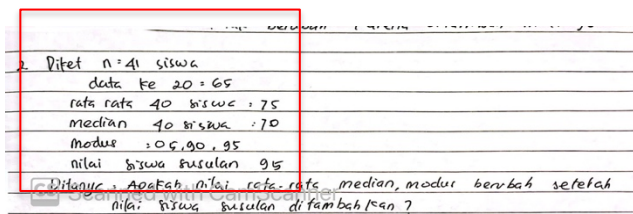 2. Diket n = 41 siswa
data ke 20 = 65
rata rata 40 siswa : 75
median 40 siswa : 70
modus : 05,90,95
nilai siswa susulan 95
Ditanya : Apakah nilai rata-rata median, modus berubah setelah
nilai siswa susulan ditambahkan ?
CS Scanned with CamScanner